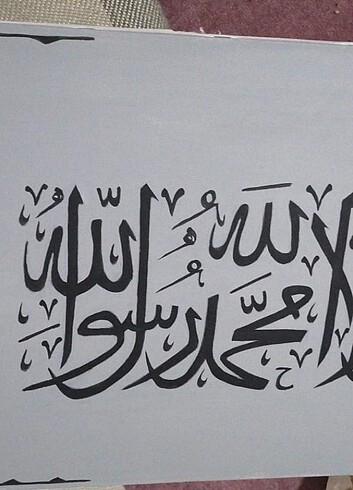 الله محمد رسول الله